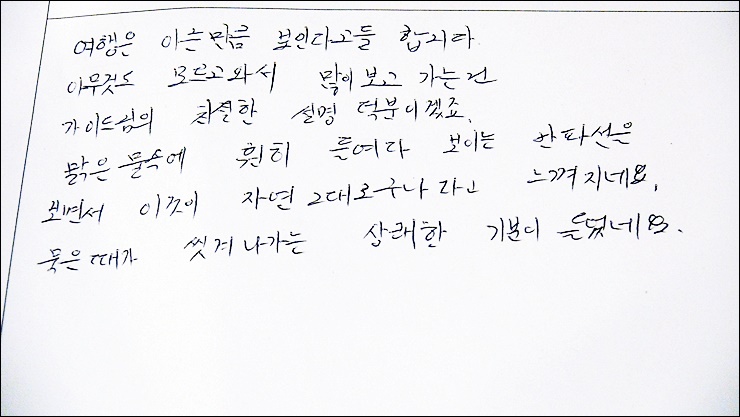 여행은 아는만큼 보인다고들 합니다
아무것도 모르고와서 많이보고 가는건
가이드님의 친절한 설명 덕분이겠죠.
맑은 물속에 훤히 들여다 보이는 난파선을
보면서 이것이 자연 그대로구나 라고 느껴지네요.
묵은때가 씻겨 나가는 상쾌한 기분이 들었네요.